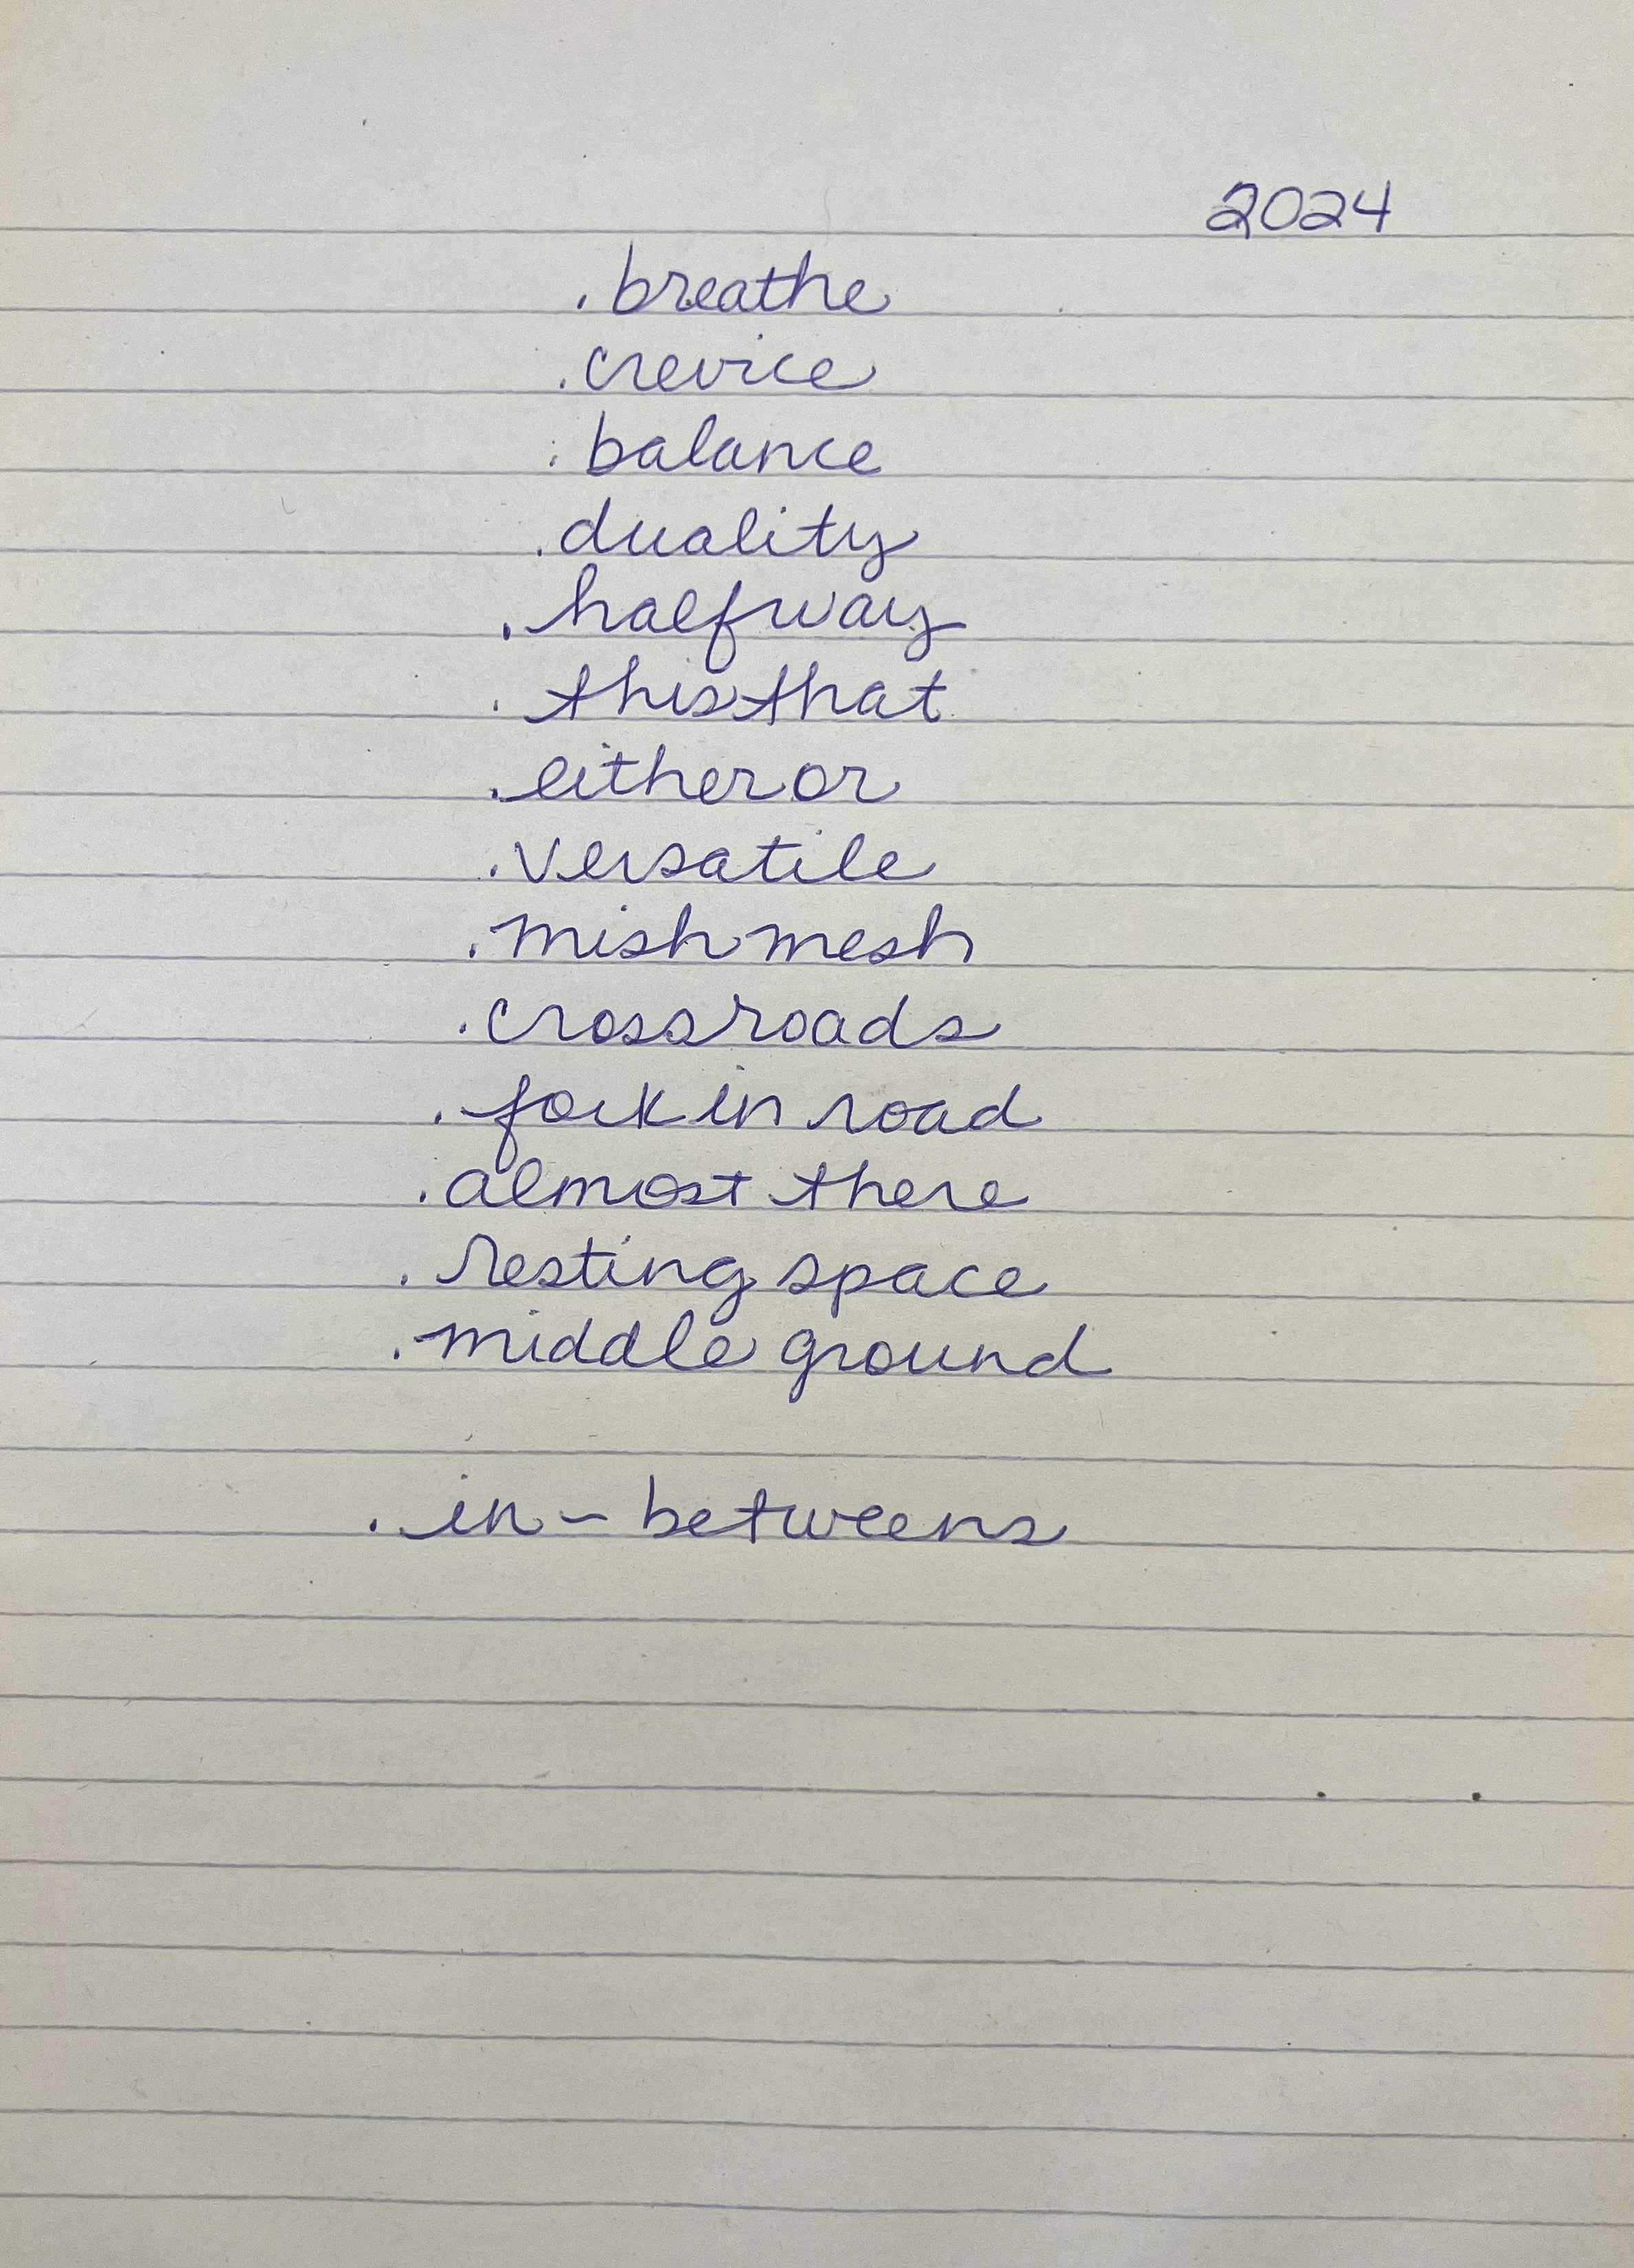 2024
. breathe
. crevice
: balance
. duality
. halfway
. thisthat
. either or
. versatile
. mish mesh
. crossroads
. fork in road
. almost there
. resting space
. middle ground
. in - betweens